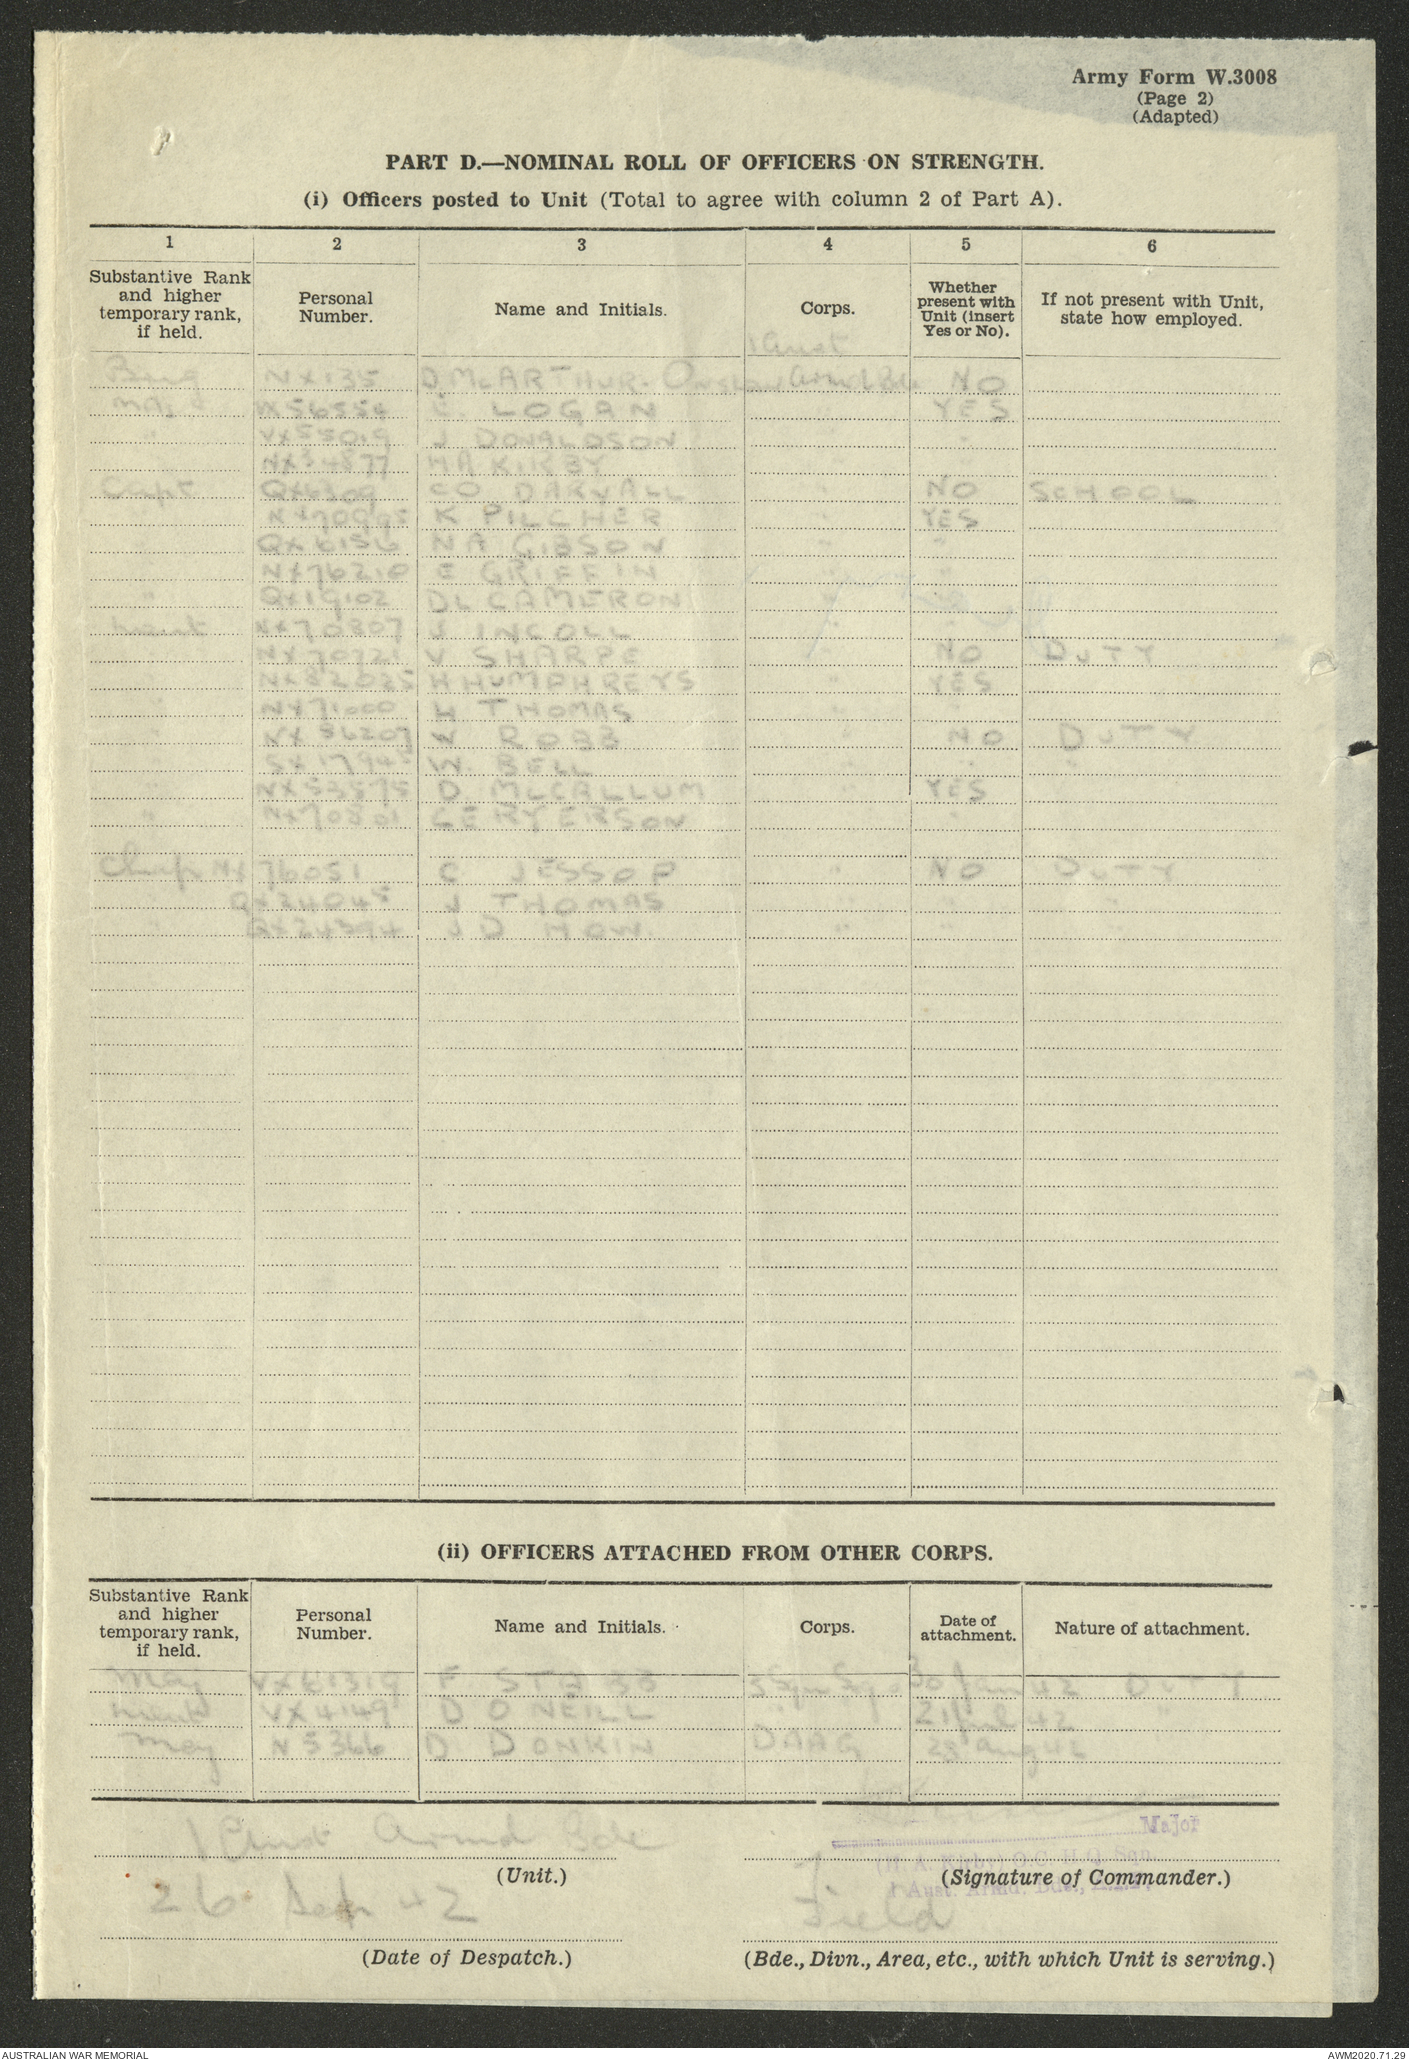 Army Form W.3008
(Page 2)
(Adapted)
PART D.—NOMINAL ROLL OF OFFICERS ON STRENGTH.
(i) Officers posted to Unit (Total to agree with column 2 of Part A).
1 2 3 4 5 6
Substantive Rank and higher temporary rank, if held. Personal Number. Name and Initials. Corps. Whether present with Unit (insert Yes or No). If not present with Unit, state how employed.
1 Aust
Brig NX135 D McARTHUR-Onslow Armd Bde NO
Maj E. LOGAN " YES
" VX55019 J DONALDSON " "
" NX34877 HA KIRBY " "
Capt QX6309 CO DARVALL " NO SCHOOL
" K PILCHER " YES
" QX6156 NA GIBSON " "
" NX76210 E GRIFFIN " "
" QX19102 DL CAMERON " "
Lieut NX70807 J INCOLL " "
" NX70721 V SHARPE " NO DUTY
" NX82025 H HUMPHREYS " YES
" NX71000 H THOMAS " "
" NX36207 W ROBB " NO DUTY
" SX17945 W. BELL " " "
" NX53575 D. McCALLUM " YES
" NX70801 CE RYERSON " "
Chap NX76051 C JESSOP " NO DUTY
" QX24045 J THOMAS " " "
" QX24394 J D HOW. " " "
(ii) OFFICERS ATTACHED FROM OTHER CORPS.
Substantive Rank and higher temporary rank, if held. Personal Number. Name and Initials. Corps. Date of attachment. Nature of attachment.
Maj VX61319 F STABB 30 Jan 42 DUTY
Lieut VX4149 D ONEILL " 21 Jul 42 "
Maj N5366 D. DONKIN DAAG 28 Aug 42
1 Aust Armd Bde
Major
(Unit.)
(H. A. Kirby) O.C. H.Q. Sqn.
(Signature of Commander.)
1 Aust. Armd. Bde.,
26 Sep 42
Field
(Date of Despatch.)
(Bde., Divn., Area, etc., with which Unit is serving.)
AUSTRALIAN WAR MEMORIAL
AWM2020.71.29